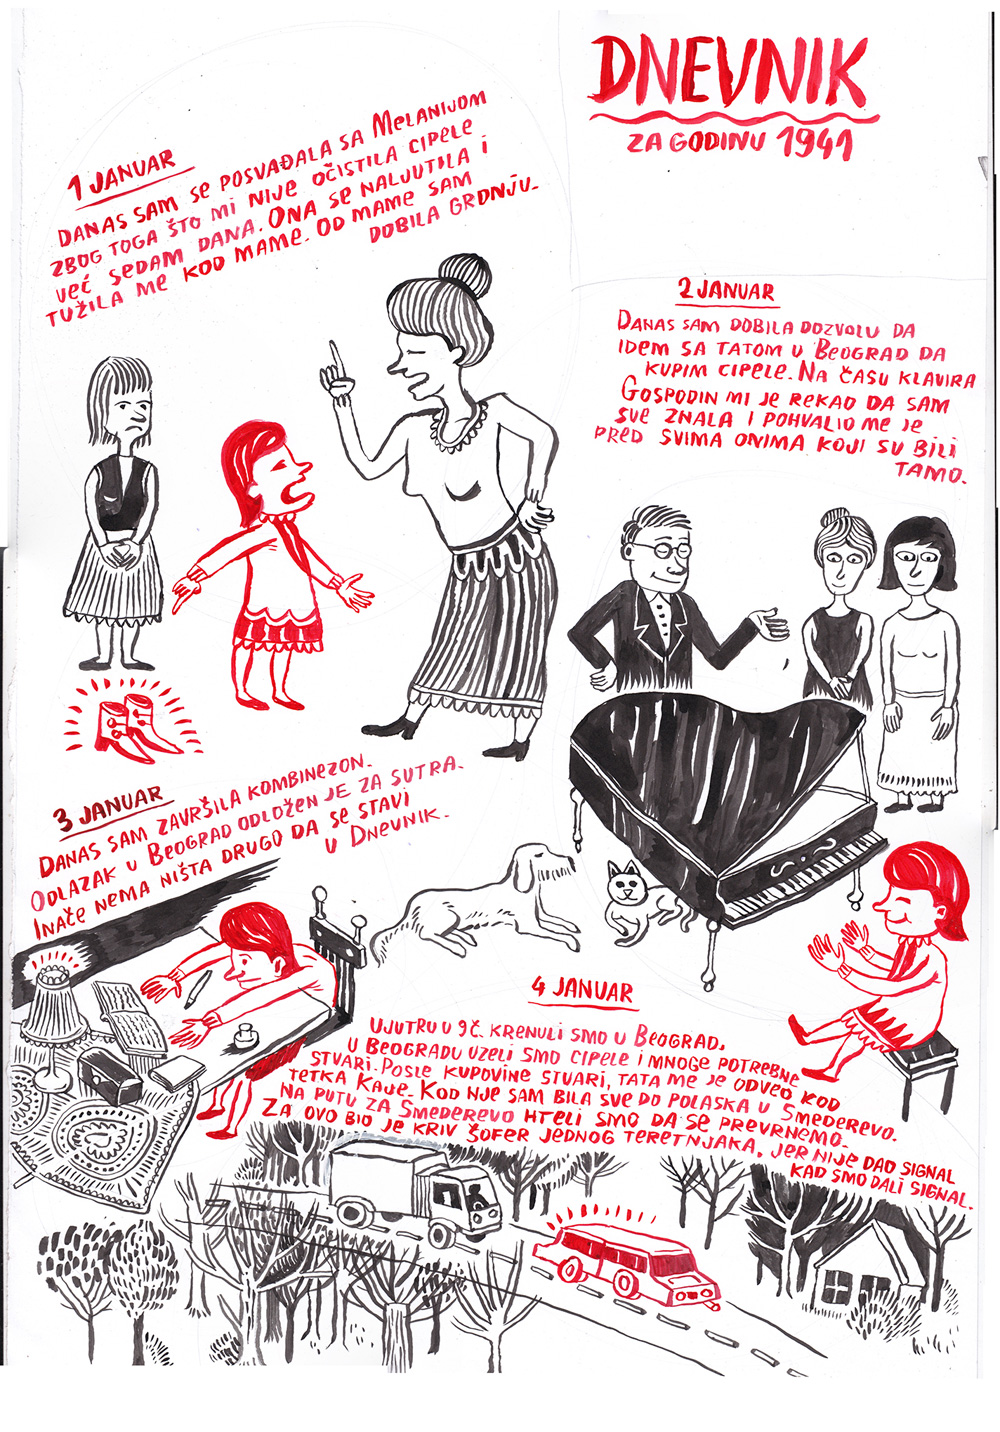 DNEVNIK
ZA GODINU 1941
1 JANUAR
DANAS SAM SE POSVAĐALA SA MELANIJOM
ZBOG TOGA ŠTO MI NIJE OČISTILA CIPELE
VEĆ SEDAM DANA. ONA SE NALJUTILA I
TUŽILA ME KOD MAME. OD MAME SAM
DOBILA GRDNJU.
2 JANUAR
DANAS SAM DOBILA DOZVOLU DA
IDEM SA TATOM U BEOGRAD DA
KUPIM CIPELE. NA ČASU KLAVIRA
GOSPODIN MI JE REKAO DA SAM
SVE ZNALA I POHVALIO ME JE
PRED SVIMA ONIMA KOJI SU BILI
TAMO.
3 JANUAR
DANAS SAM ZAVRŠILA KOMBINEZON.
ODLAZAK U BEOGRAD ODLOŽEN JE ZA SUTRA.
INAČE NEMA NIŠTA DRUGO DA SE STAVI
U DNEVNIK.
4 JANUAR
UJUTRU U 9 Č. KRENULI SMO U BEOGRAD.
U BEOGRADU UZELI SMO CIPELE I MNOGE POTREBNE
STVARI. POSLE KUPOVINE STVARI, TATA ME JE ODVEO KOD
TETKA KAJE. KOD NJE SAM BILA SVE DO POLASKA U SMEDEREVO.
NA PUTU ZA SMEDEREVO HTELI SMO DA SE PREVRNEMO.
ZA OVO BIO JE KRIV ŠOFER JEDNOG TERETNJAKA, JER NIJE DAO SIGNAL
KAD SMO DALI SIGNAL.